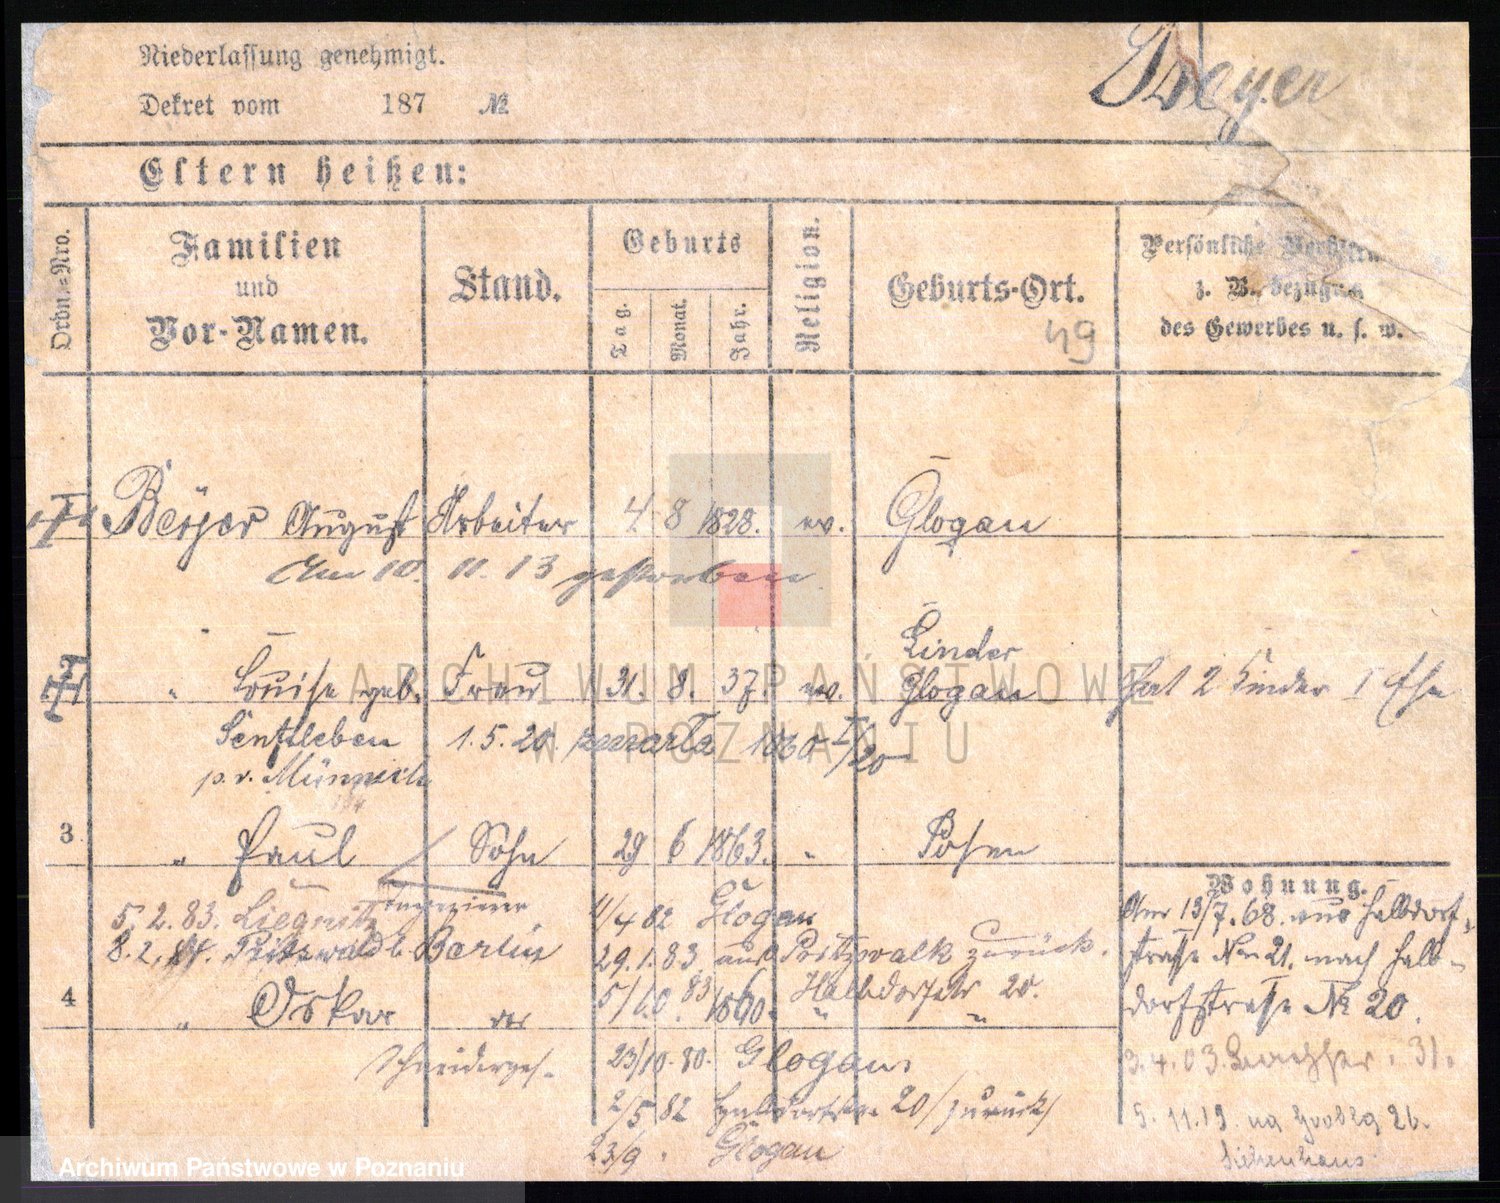 Niederlassung genehmigt.
Dekret vom 187 №
Eltern heißen:
Ordn.-Nro.
Familien
und
Vor-Namen.
Stand.
Geburts
Tag.
Monat.
Jahr.
Religion.
Geburts-Ort.
49
Persönliche
z. B. bezügl.
des Gewerbes u. s. w.
August Arbeiter 4 8 1828. ev. Glogau
Am 10. 11. 13 gestorben
Linder
" Louise geb. Frau 31. 8. 37. ev. Glogau hat 2 Kinder I Ehe
Senftleben 1.5.20 zmarła
p. v.
3 " Paul Sohn 29 6 1863. " Posen
Wohnung.
5.2.83. Liegnitz 11/4 82 Glogau
Am 13/7.68. aus Halbdorf-
8.2. Berlin 29.1.83 aus Pritzwalk zurück.
straße No 21. nach Halb-
Halbdorfstr 20.
4 " Oskar 1860. " "
dorfstraße № 20.
Schneiderges. 23/10.80. Glogau.
3.4.03. 31.
2/5 82 Halbdorfstr. 20 /zurück/
5.11.19. na Grobla 26.
23/9. Glogau
Siechenhaus
ARCHIWUM PAŃSTWOWE
W POZNANIU
Archiwum Państwowe w Poznaniu